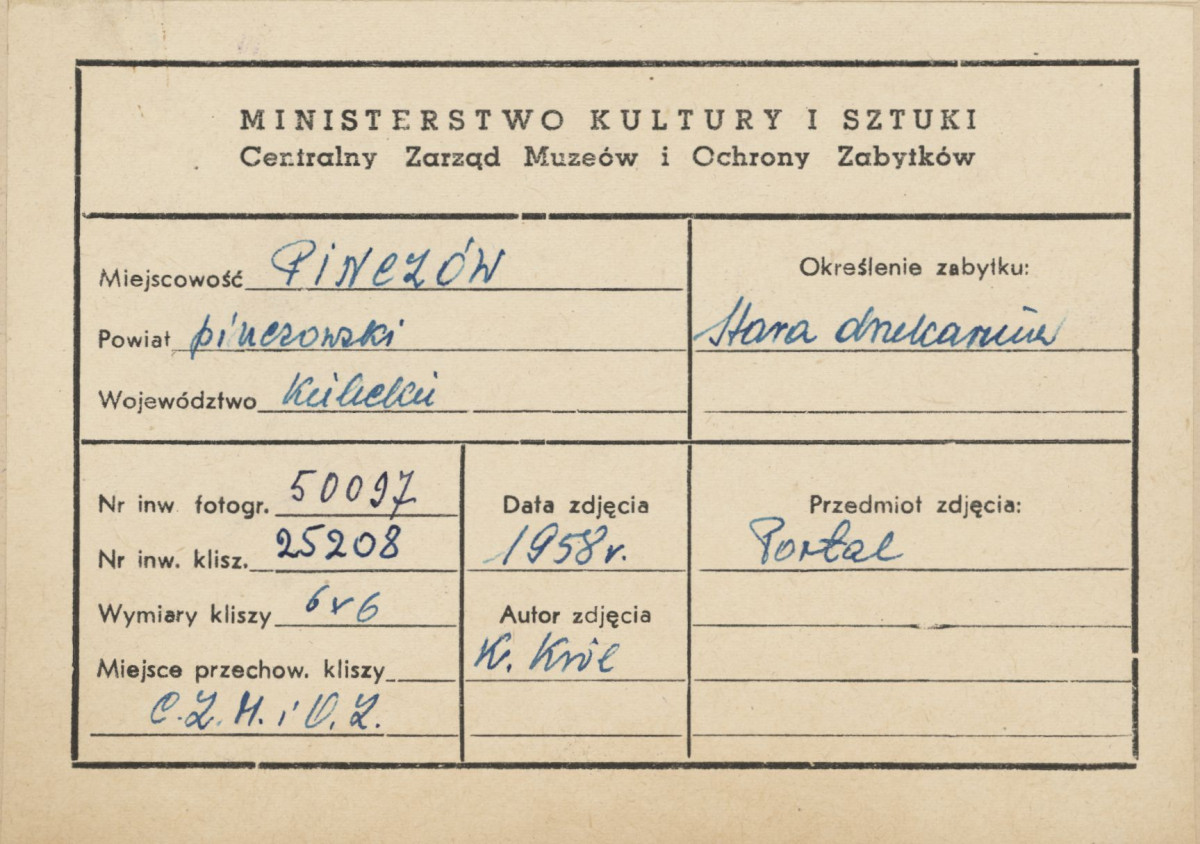 MINISTERSTWO KULTURY I SZTUKI
Centralny Zarząd Muzeów i Ochrony Zabytków
Miejscowość PINCZÓW
Powiat pinczowski
Województwo Kielecki
Określenie zabytku:
Stara drukarnia
Nr inw. fotogr. 50097
Nr inw. klisz. 25208
Wymiary kliszy 6x6
Miejsce przechow. kliszy
C.Z.M. i O.Z.
Data zdjęcia
1958 r.
Autor zdjęcia
K. Król
Przedmiot zdjęcia:
Portal